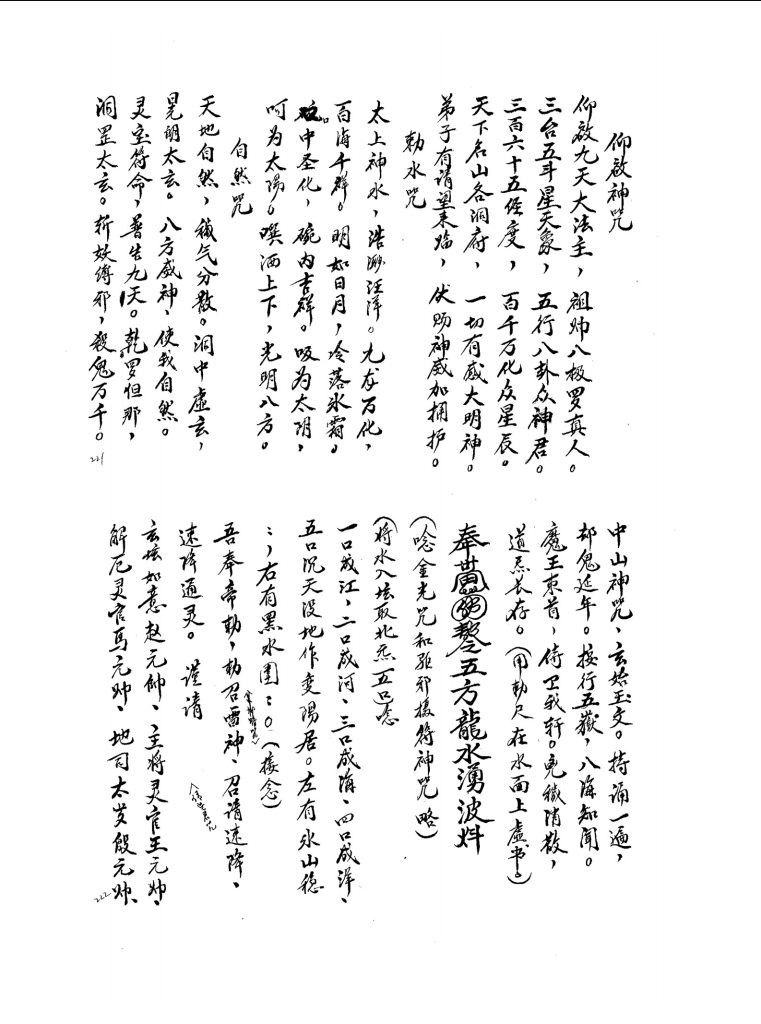 仰啟神咒
仰啟九天大法主，祖师八极罗真人。
三台五斗星天象，五行八卦众神君。
三百六十五经度，百千万化众星辰。
天下名山各洞府，一切有感大明神。
弟子有请望来临，伏赐神威加拥护。
勅水咒
太上神水，浩渺汪洋。九龙万化，
百海千群。明如日月，冷落冰霜。
中圣化，碗内吉祥。吸为太阴，
呵为太阳。噀洒上下，光明八方。
自然咒
天地自然，秽气分散。洞中虚玄，
晃朗太玄。八方威神，使我自然。
灵宝符命，普告九天。乾罗怛那，
洞罡太玄。斩妖缚邪，殺鬼万千。
221
中山神咒、玄始玉文。持诵一遍，
却鬼延年。按行五嶽，八海知闻。
魔王束首，侍卫我轩。凶秽消散，
道炁长存。（用勅尺在水面上虚书。）
奉五方龍水湧波
（唸金光咒和驱邪摄符神咒略）
（将水入坛取北炁五口唸）
一口成江，二口成河、三口成海、四口成洋、
五口沉天没地作变陽居。左有冰山稳
：，右有黑水围：。（接念）
吾奉帝勅，勅召雷神、召请速降、
速降通灵。谨请
玄坛如意赵元帥、主将灵官王元帅、
解厄灵官马元帅、地司太岁殷元帅、
222